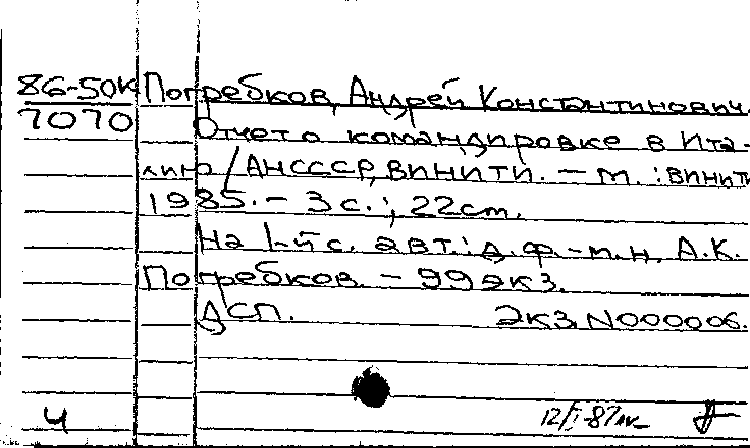 86-50К Погребков, Андрей Константинович.
7070 Отчет о командировке в Ита-
лию / АН СССР, ВИНИТИ. — М. : ВИНИТИ
1985. - 3 с. ; 22 см.
На 1-й с. авт.: д. ф.-м. н. А. К.
Погребков. - 99 экз.
ДСП. Экз. N000006.
Ч 12/I-87